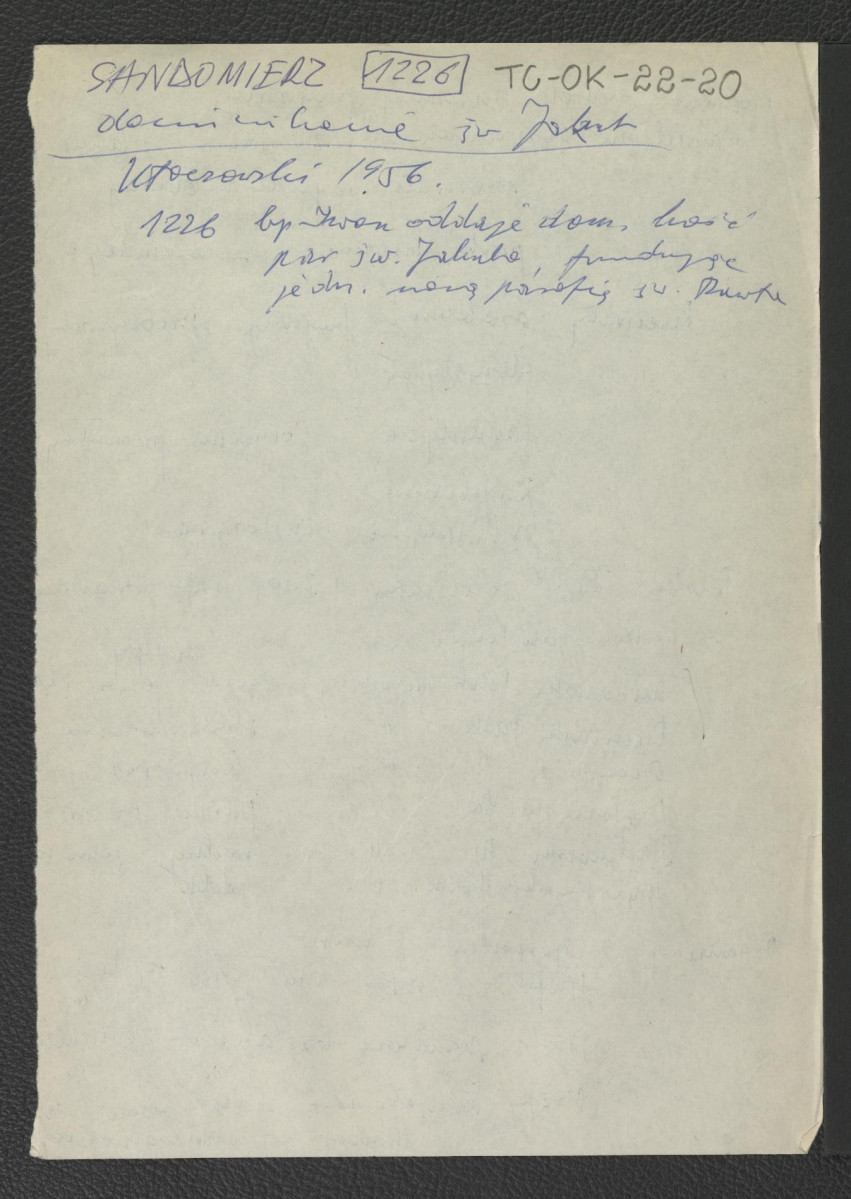 SANDOMIERZ 1226 TG-OK-22-20
dominikanie św Jakub
Kłoczowski 1956.
1226 bp Iwon oddaje dom. kość
par św. Jakuba, fundując
jedn. nową parafię św. Pawła